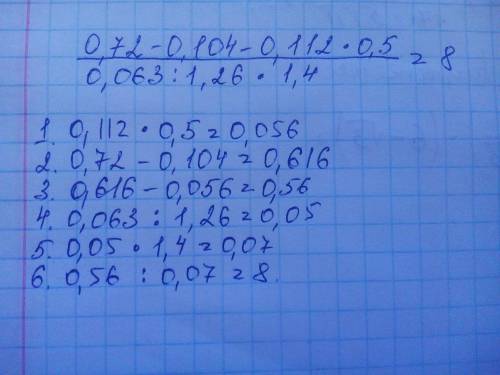 0,72 - 0,104 - 0,112 · 0,5
0,063 : 1,26 · 1,4 = 8
1. 0,112 · 0,5 = 0,056
2. 0,72 - 0,104 = 0,616
3. 0,616 - 0,056 = 0,56
4. 0,063 : 1,26 = 0,05
5. 0,05 · 1,4 = 0,07
6. 0,56 : 0,07 = 8.